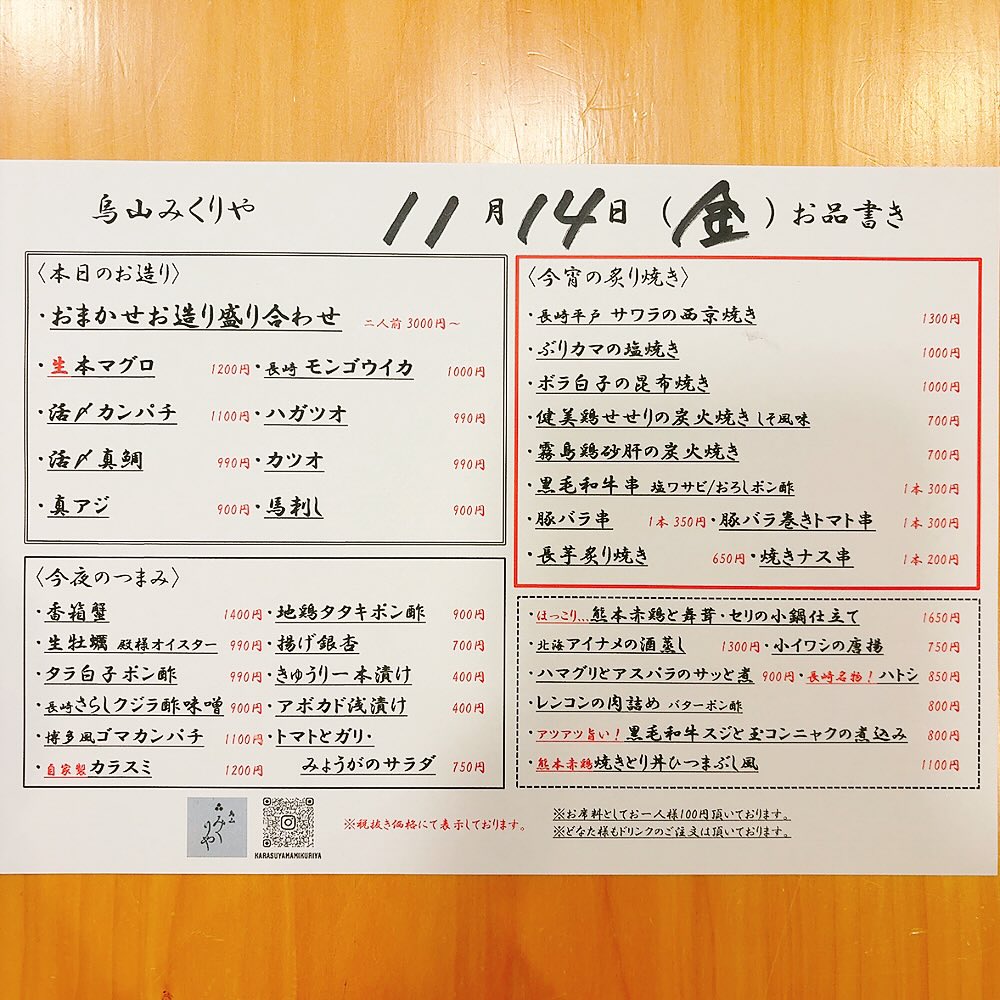 烏山みくりや 11月14日（金）お品書き
〈本日のお造り〉
・おまかせお造り盛り合わせ 二人前 3000円～
・生 本マグロ 1200円・長崎 モンゴウイカ 1000円
・活〆カンパチ 1100円・ハガツオ 990円
・活〆真鯛 990円・カツオ 990円
・真アジ 900円・馬刺し 900円
〈今夜のつまみ〉
・香箱蟹 1400円・地鶏タタキポン酢 900円
・生牡蠣 殿様オイスター 990円・揚げ銀杏 700円
・タラ白子ポン酢 990円・きゅうり一本漬け 400円
・長崎さらしクジラ酢味噌 900円・アボカド浅漬け 400円
・博多風ゴマカンパチ 1100円・トマトとガリ・
・自家製カラスミ 1200円 みょうがのサラダ 750円
〈今宵の炙り焼き〉
・長崎平戸 サワラの西京焼き 1300円
・ぶりカマの塩焼き 1000円
・ボラ白子の昆布焼き 1000円
・健美鶏せせりの炭火焼き しそ風味 700円
・霧島鶏砂肝の炭火焼き 700円
・黒毛和牛串 塩ワサビ/おろしポン酢 1本 300円
・豚バラ串 1本 350円・豚バラ巻きトマト串 1本 300円
・長芋炙り焼き 650円・焼きナス串 1本 200円
・ほっこり…熊本赤鶏と舞茸・セリの小鍋仕立て 1650円
・北海アイナメの酒蒸し 1300円・小イワシの唐揚 750円
・ハマグリとアスパラのサッと煮 900円・長崎名物！ハトシ 850円
・レンコンの肉詰め バターポン酢 800円
・アツアツ旨い！黒毛和牛スジと玉コンニャクの煮込み 800円
・熊本赤鶏焼きとり丼ひつまぶし風 1100円
烏山
みくりや
KARASUYAMAMIKURIYA
※税抜き価格にて表示しております。
※お席料としてお一人様100円頂いております。
※どなた様もドリンクのご注文は頂いております。